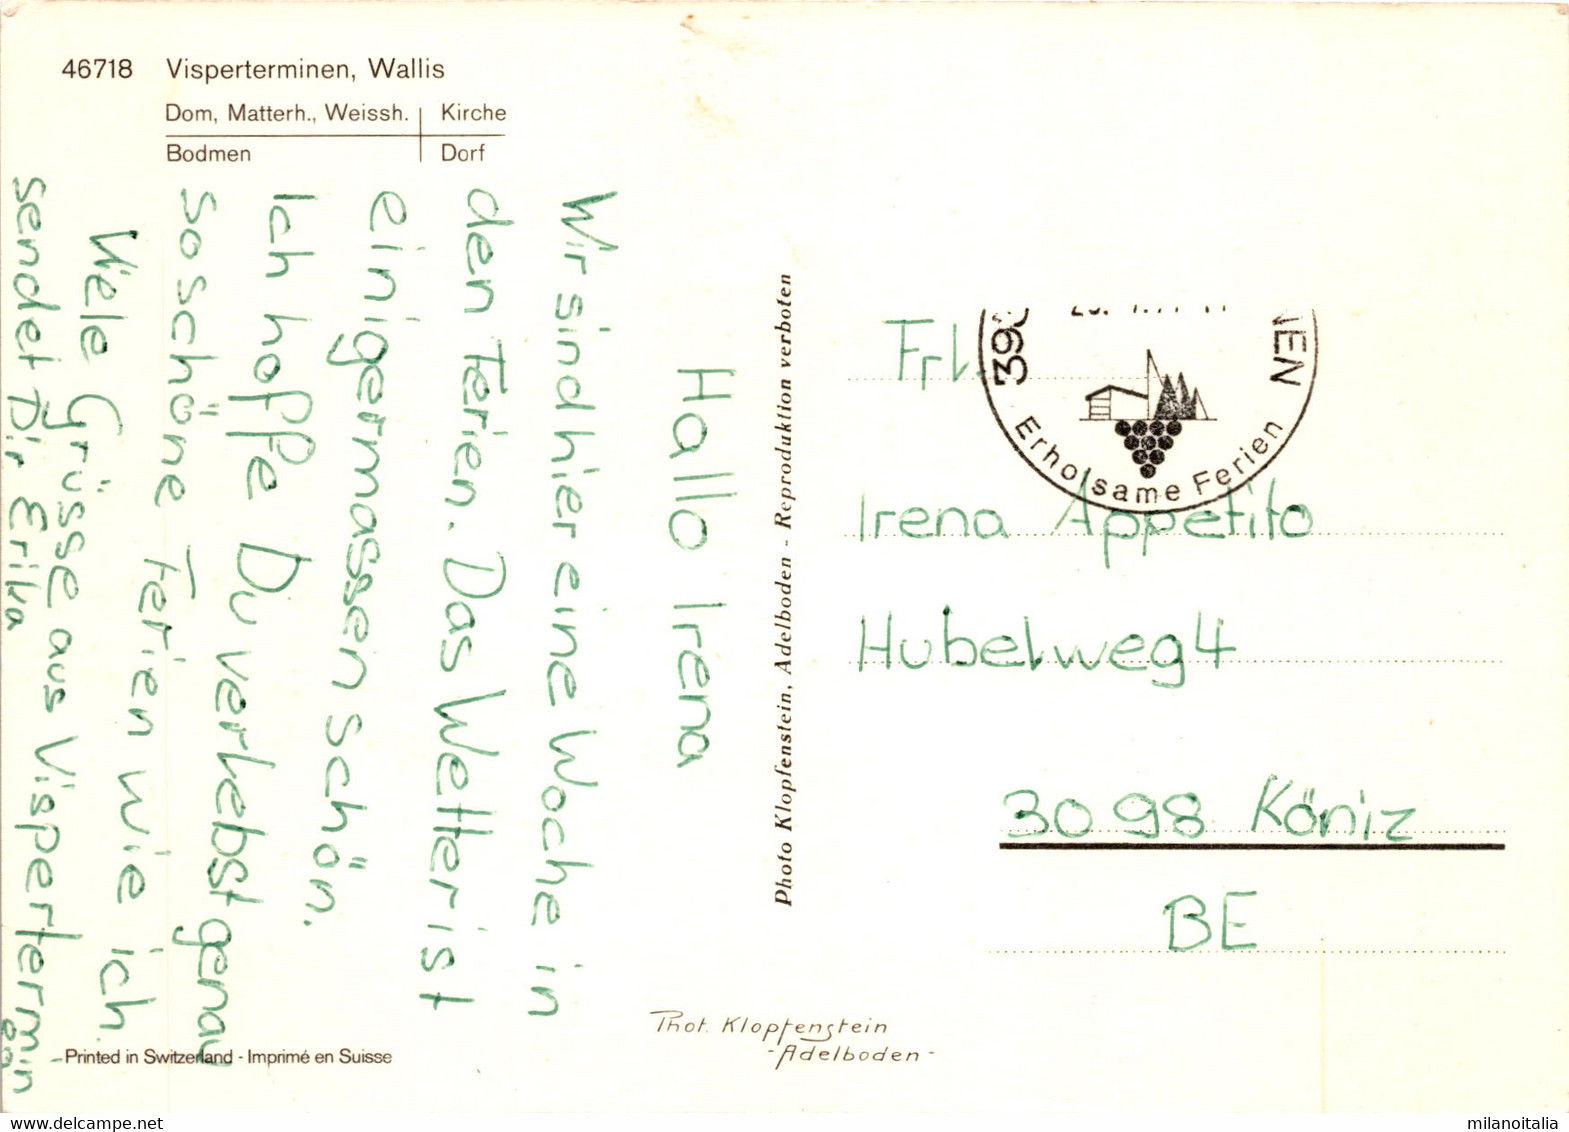 46718 Visperterminen, Wallis
Dom, Matterh., Weissh. Kirche
Bodmen Dorf
Hallo Irena
Wir sind hier eine Woche in
den Ferien. Das Wetter ist
einigermassen schön.
Ich hoffe Du verbebst genau
so schöne Ferien wie ich.
Viele Grüsse aus Vispertermin
en
sendet Dir Erika
Photo Klopfenstein, Adelboden - Reproduktion verboten
NEN
Erholsame Ferien
Frl.
Irena Appetito
Hubelweg 4
3098 Köniz
BE
Phot. Klopfenstein
- Adelboden -
Printed in Switzerland - Imprimé en Suisse
delcampe.net
milanoitalia